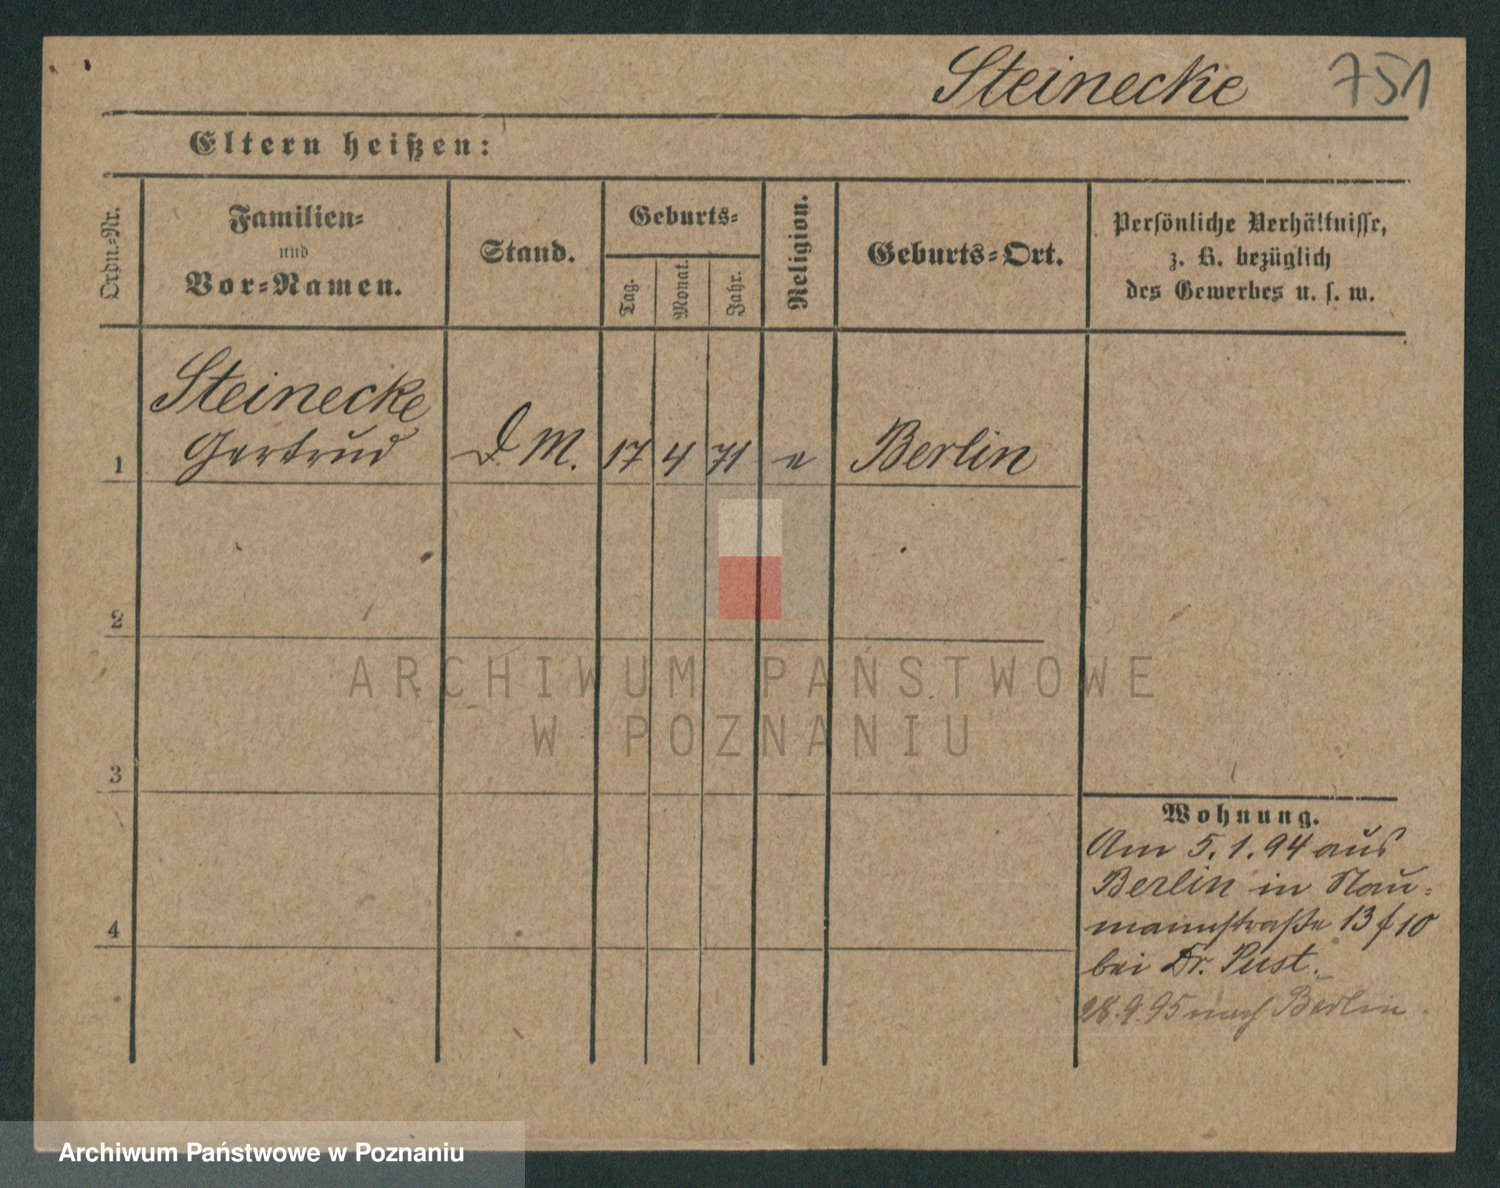 Steinecke 751
Eltern heißen:
Ordn.-Nr.
Familien-
und
Vor-Namen.
Stand.
Geburts-
Tag.
Monat.
Jahr.
Religion.
Geburts-Ort.
Persönliche Verhältnisse,
z. B. bezüglich
des Gewerbes u. s. w.
Steinecke
1 Gertrud D. M. 17 4 71 e Berlin
2
3
4
Wohnung.
Am 5. 1. 94 aus
Berlin in Nau-
mannstraße 13 f 10
bei Dr. Pust.
28.9.95 nach Berlin.
ARCHIWUM PAŃSTWOWE
W POZNANIU
Archiwum Państwowe w Poznaniu